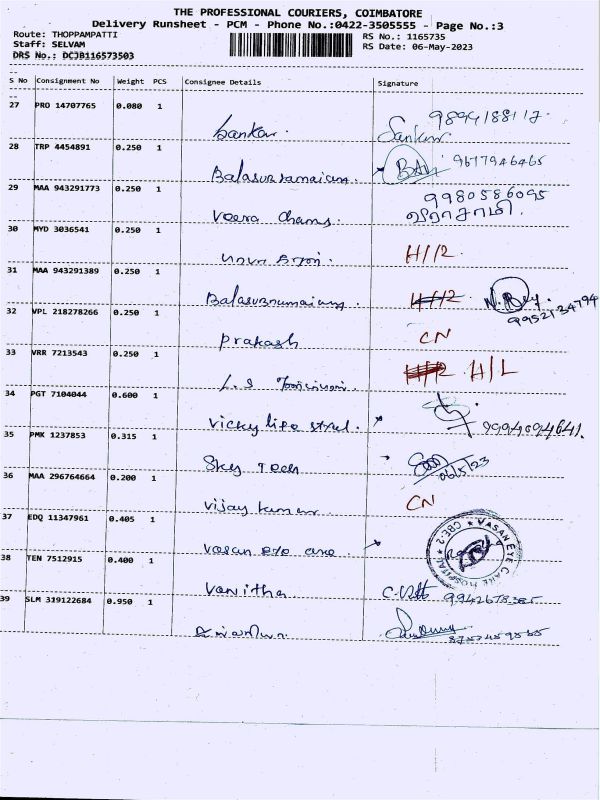 THE PROFESSIONAL COURIERS, COIMBATORE
Delivery Runsheet - PCM - Phone No.:0422-3505555 - Page No.:3
Route: THOPPAMPATTI
RS No.: 1165735
Staff: SELVAM
RS Date: 06-May-2023
DRS No.: DCJB116573503
S No Consignment No Weight PCS Consignee Details Signature
27 PRO 14707765 0.080 1
Sankar.
28 TRP 4454891 0.250 1
9617946465
29 MAA 943291773 0.250 1
9980586095
Veera
வீராசாமி.
30 MYD 3036541 0.250 1
H/12.
31 MAA 943291389 0.250 1
32 VPL 218278266 0.250 1
Prakash CN
33 VRR 7213543 0.250 1
L.S H/L
34 PGT 7104044 0.600 1
Vicky 9994094641.
35 PMK 1237853 0.315 1
Sky Tech 06/5/23
36 MAA 296764664 0.200 1
Vijay Kumar CN
37 EDQ 11347961 0.405 1
Vasan eye
VASAN EYE CARE HOSPITAL
CBE-2
38 TEN 7512915 0.400 1
Vanitha
39 SLM 319122684 0.950 1